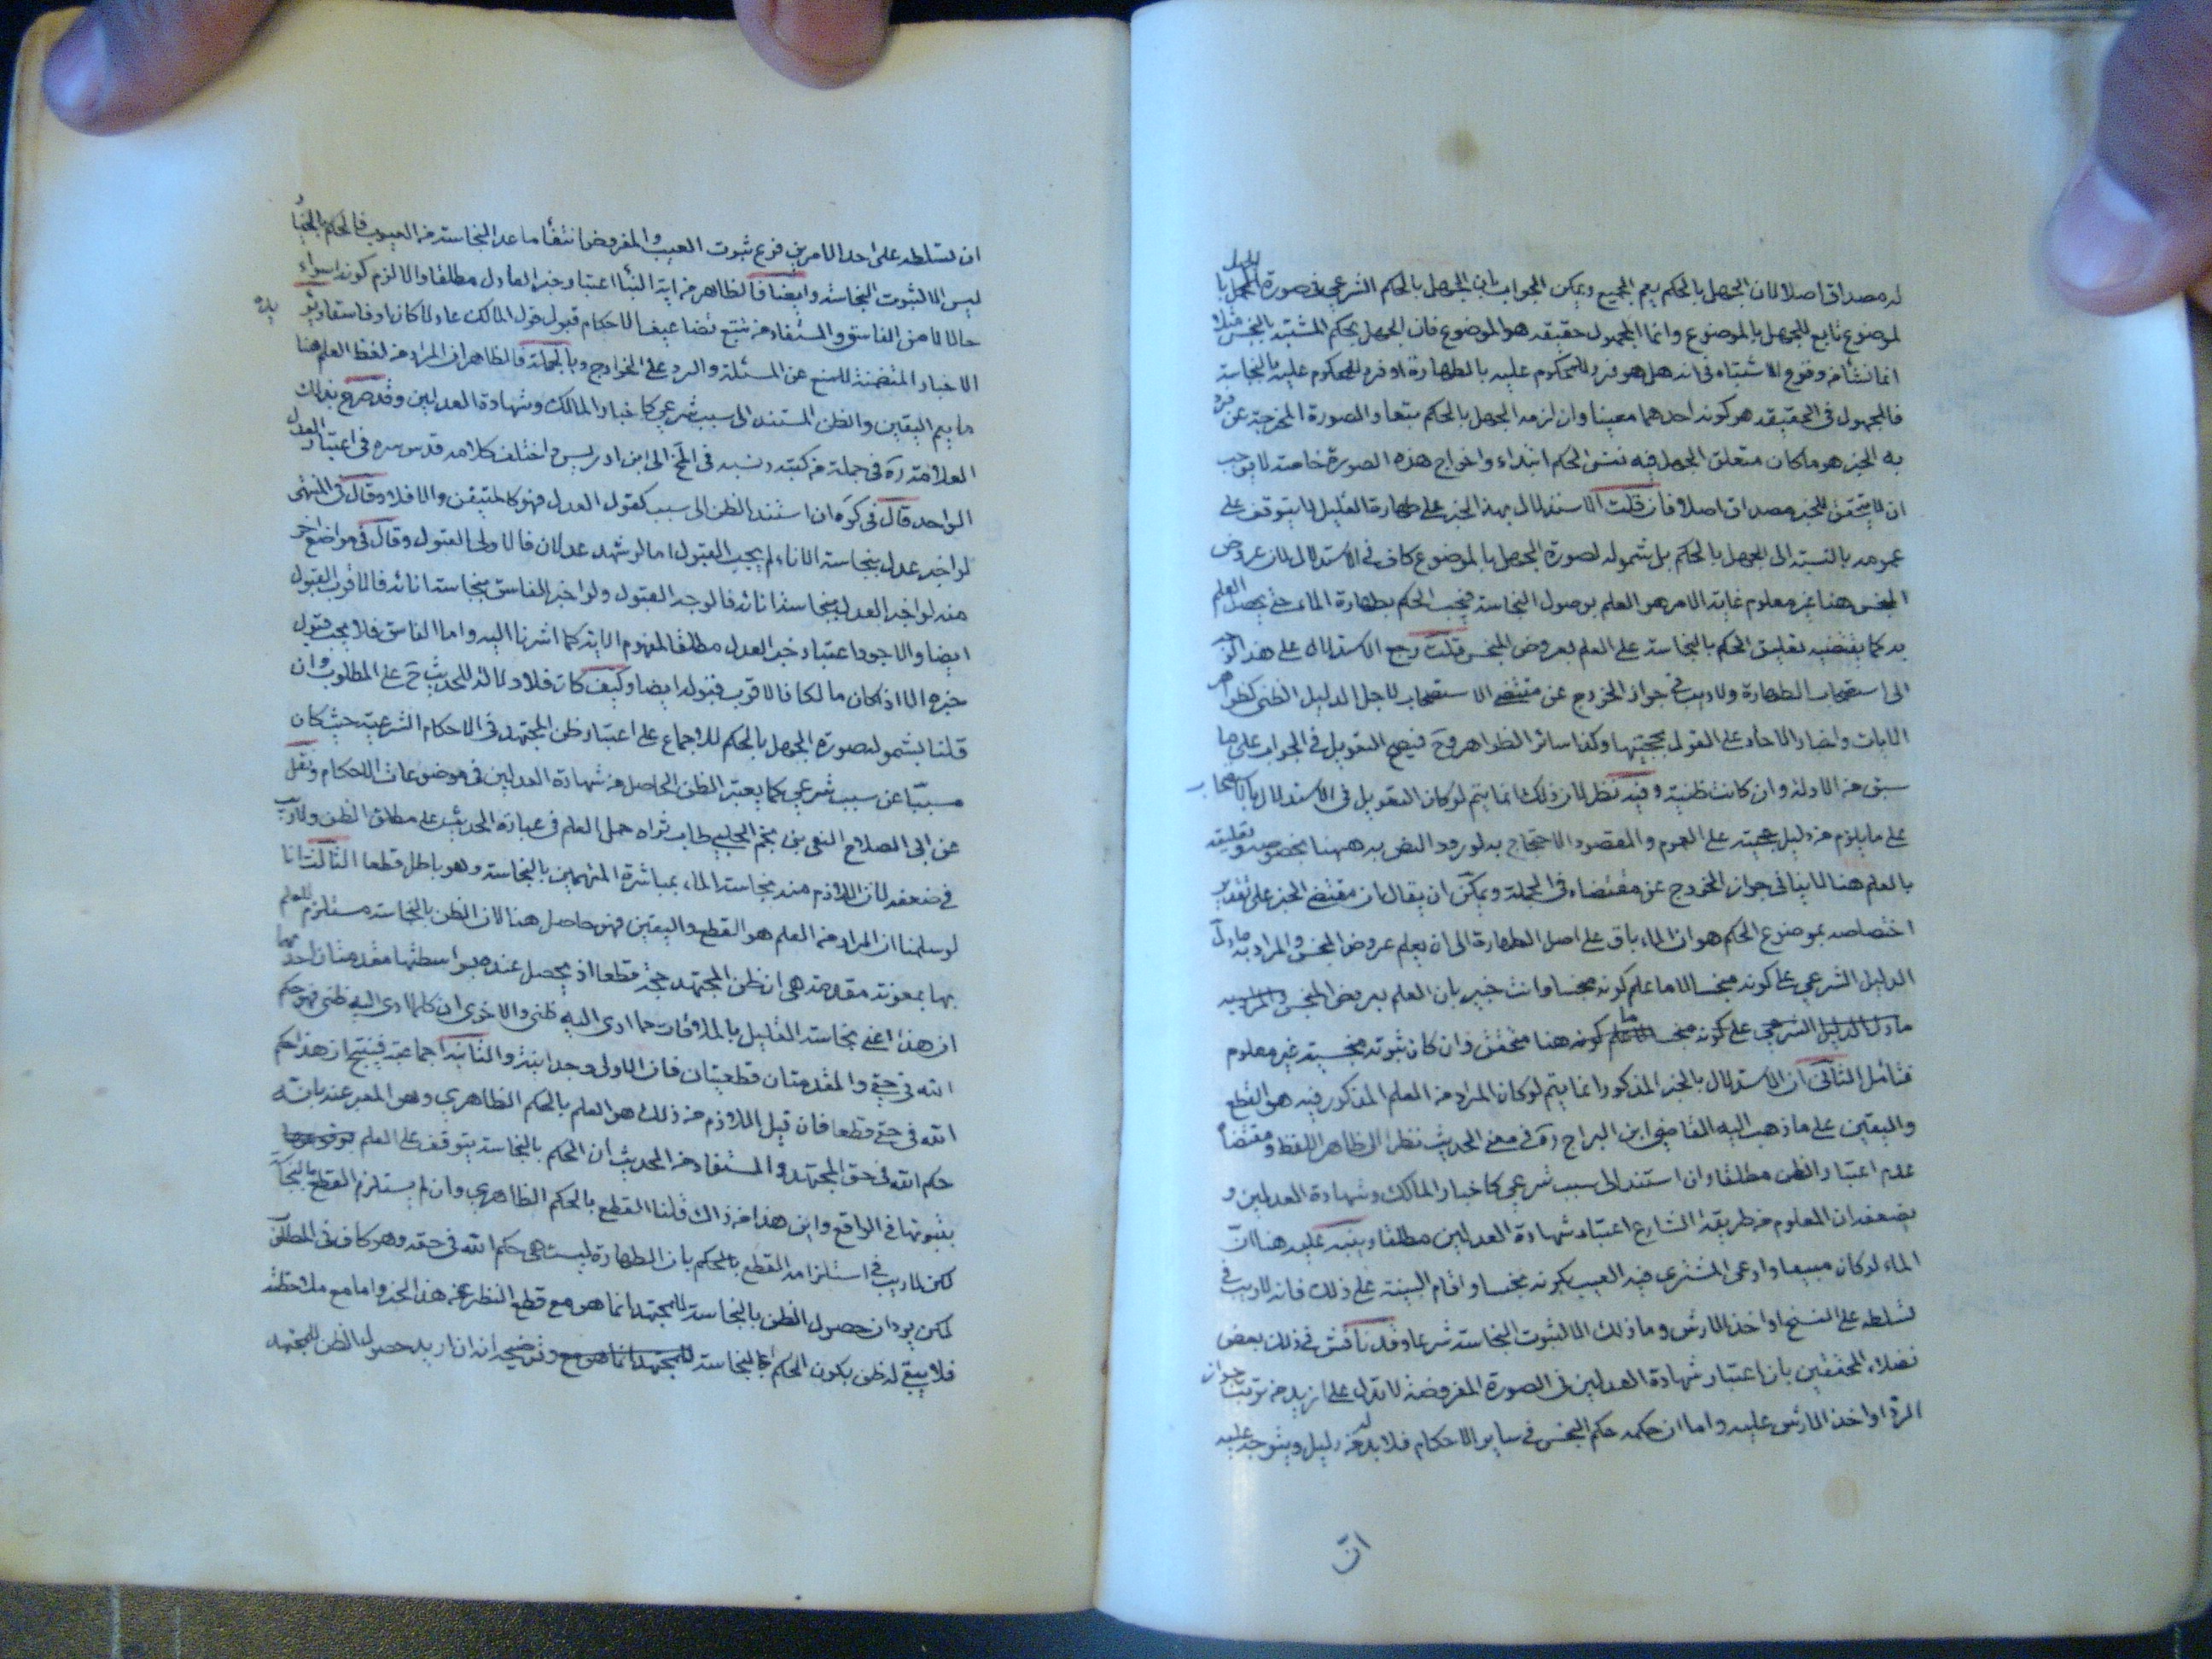 له مصداق اصلا لان الجهل بالحكم يعم الجميع ويمكن الجواب بان الجهل بالحكم الشرعي في صورة الجهل با
لموضوع تابع للجهل بالموضوع وانما المجهول حقيقة هو الموضوع فان الجهل بحكم المشتبه بالنجس مثلا
انما نشأ من وقوع الاشتباه في انه هل هو فرد للمحكوم عليه بالطهارة او فرد للمحكوم عليه بالنجاسة
فالمجهول في الحقيقة هو كونه احدهما معينا وان لزمه الجهل بالحكم تبعا والصورة المخرجة عن
به الخبر هو ما كان متعلق الجهل فيه نفس الحكم ابتداء واخراج هذه الصورة خاصة لا يوجب
ان لا يتحقق للخبر مصداق اصلا فان قلت الاستدلال بهذا الخبر على طهارة القليل لا يتوقف على
عمومه بالنسبة الى الجهل بالحكم بل شموله لصورة الجهل بالموضوع كاف في الاستدلال لان عروض
النجس هنا غير معلوم غاية الامر هو العلم بوصول النجاسة فيجب الحكم بطهارة الماء حتى يحصل العلم
به كما يقتضيه تعليق الحكم بالنجاسة على العلم بعروض المنجس قلت رجع الاستدلال على هذا الوجه
الى استصحاب الطهارة ولا ريب في جواز الخروج عن مقتضى الاستصحاب لاجل الدليل الظني كظواهر
الايات واخبار الاحاد على القول بحجيتها وكذا سائر الظواهر وح فيصح التعويل في الجواب على ما
سبق من الادلة وان كانت ظنية وفيه نظر لان ذلك انما يتم لو كان التعويل في الاستدلال بالاستصحاب
على ما يلزم من دليل حجيته على العموم والمقصود الاحتجاج به لورود النص به ههنا بخصوصه وتعليقه
بالعلم هنا لا ينافي جواز الخروج عن مقتضاه في الجملة ويمكن ان يقال ان مقتضى الخبر على تقدير
اختصاصه بموضوع الحكم هو ان الماء باق على اصل الطهارة الى ان يعلم عروض المنجس والمراد به ما دل
الدليل الشرعي على كونه منجسا لا ما علم كونه منجسا وانت خبير بان العلم بعروض المنجس والمراد به
ما دل الدليل الشرعي على كونه منجسا لا ما علم كونه هنا متحقق وان كان ثبوته منجسيته غير معلوم
فتأمل الثاني ان الاستدلال بالخبر المذكور انما يتم لو كان المراد من العلم المذكور فيه هو القطع
واليقين على ما ذهب اليه القاضي ابن البراج ره في معنى الحديث نظرا الى ظاهر اللفظ ومقتضاه
عدم اعتبار الظن مطلقا وان استند الى سبب شرعي كاخبار المالك وشهادة العدلين و
يضعفه ان المعلوم من طريقة الشارع اعتبار شهادة العدلين مطلقا وينبه عليه هنا ان
الماء لو كان مبيعا وادعى المشتري فيه العيب بكونه نجسا واقام البينة على ذلك فانه لا ريب في
تسلطه على الفسخ او اخذ الارش وما ذلك الا لثبوت النجاسة شرعا وقد ناقش في ذلك بعض
فضلاء المحققين بان اعتبار شهادة العدلين في الصورة المفروضة لا تدل على ازيد من ترتب جواز
الرد او اخذ الارش عليه واما ان حكمه حكم النجس في ساير الاحكام فلا بد له من دليل ويتوجه عليه
ان
ان تسلطه على احد الامرين فرع ثبوت العيب والمفروض انتفاء ما عدا النجاسة من العيوب فالحكم بالخيار
ليس الا لثبوت النجاسة وايضا فالظاهر من اية النبأ اعتبار خبر العادل مطلقا والا لزم كونه اسواء
حالا من الفاسق والمستفاد من تتبع تضاعيف الاحكام قبول قول المالك عادلا كان او فاسقا
الاخبار المتضمنة للمنع عن المسئلة والرد على الخوارج وبالجملة فالظاهر ان المراد من لفظ العلم هنا
ما يعم اليقين والظن المستند الى سبب شرعي كاخبار المالك وشهادة العدلين وقد صرح بذلك
العلامة ره في جملة من كتبه ونسبه في الى ابن ادريس واختلف كلامه قدس سره في اعتبار العدل
الواحد قال في كره ان استند الظن الى سبب كقول العدل فهو كالمتيقن والا فلا وقال في المنتهى
لو اخبر عدل بنجاسة الاناء لم يجب القبول اما لو شهد عدلان فالاولى القبول وقال في مواضع اخر
منه لو اخبر العدل بنجاسة انائه فالوجه القبول ولو اخبر الفاسق بنجاسة انائه فالاقرب القبول
ايضا والاجود اعتبار خبر العدل مطلقا لمفهوم الاية كما اشرنا اليه واما الفاسق فلا يجب قبول
خبره الا اذا كان مالكا فالاقرب قبوله ايضا وكيف كان فلا دلالة للحديث ح على المطلوب وان
قلنا بشموله لصورة الجهل بالحكم للاجماع على اعتبار ظن المجتهد في الاحكام الشرعية حيث كان
مسببا عن سبب شرعي كما يعتبر الظن الحاصل من شهادة العدلين في موضوعات الاحكام ونقل
عن ابي الصلاح التقي بن نجم الحلبي طاب ثراه حمل العلم في عبارة الحديث على مطلق الظن ولا ريب
في ضعفه لان اللازم منه نجاسة الماء بمباشرة المتهمين بالنجاسة وهو باطل قطعا الثالث انا
لو سلمنا ان المراد من العلم هو القطع واليقين فهو حاصل هنا لان الظن بالنجاسة مستلزم للعلم
بها بمعونة مقدمة هي ان ظن المجتهد حجة قطعا اذ يحصل عنده بواسطتها مقدمتان احديهما
ان هذا اعني نجاسة القليل بالملاقات مما ادى اليه ظني والاخرى ان كلما ادى اليه ظني فهو حكم
الله في حقي والمقدمتان قطعيتان فان الاولى وجدانية والثانية اجماعية فينتج ان هذا حكم
الله في حقي قطعا فان قيل اللازم من ذلك هو العلم بالحكم الظاهري وهو المعبر عنه بانه
حكم الله في حق المجتهد والمستفاد من الحديث ان الحكم بالنجاسة يتوقف على العلم
بثبوتها في الواقع واين هذا من ذاك قلنا القطع بالحكم الظاهري وان لم يستلزم القطع بالنجاسة
لكن لا ريب في استلزامه القطع بالحكم بان الطهارة ليست هي حكم الله في حقه وهو كاف في المطلق
لكن يرد ان حصول الظن بالنجاسة للمجتهد انما هو مع قطع النظر عن هذا الخبر واما مع ملاحظته
فلا يبقى له ظن بكون الحكم النجاسة للمجتهد انما هو مع وتوضيحه انه ان اريد حصول الظن للمجتهد